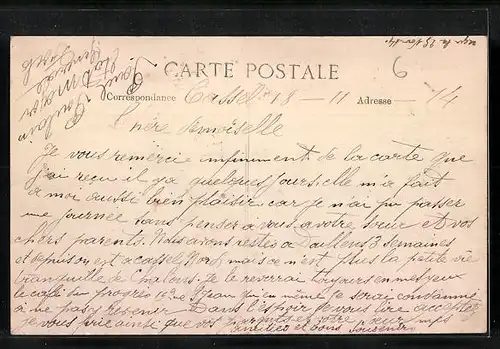 CARTE POSTALE
Correspondance Cassel 18 — 11 Adresse — 14
6
Chère demoiselle
Je vous remercie infiniment de la carte que
j'ai reçu il y a quelques jours. elle m'a fait
a moi aussi bien plaisir car je n'ai pu passer
une journée sans penser a vous a votre sœur et vos
chers parents. Nous avons restés a 3 semaines
et depuis on est a cassel Nord mais ce n'est plus la petite vie
tranquille de Chalons. Je le reverrai toujours en mes yeux
le café du Progrès rue St Jean quand même je serai condamné
a ne pas y revenir Dans l'espoir de vous lire acceptez
je vous prie ainsi que vos parents et votre sœur mes
amitiés et bons souvenirs